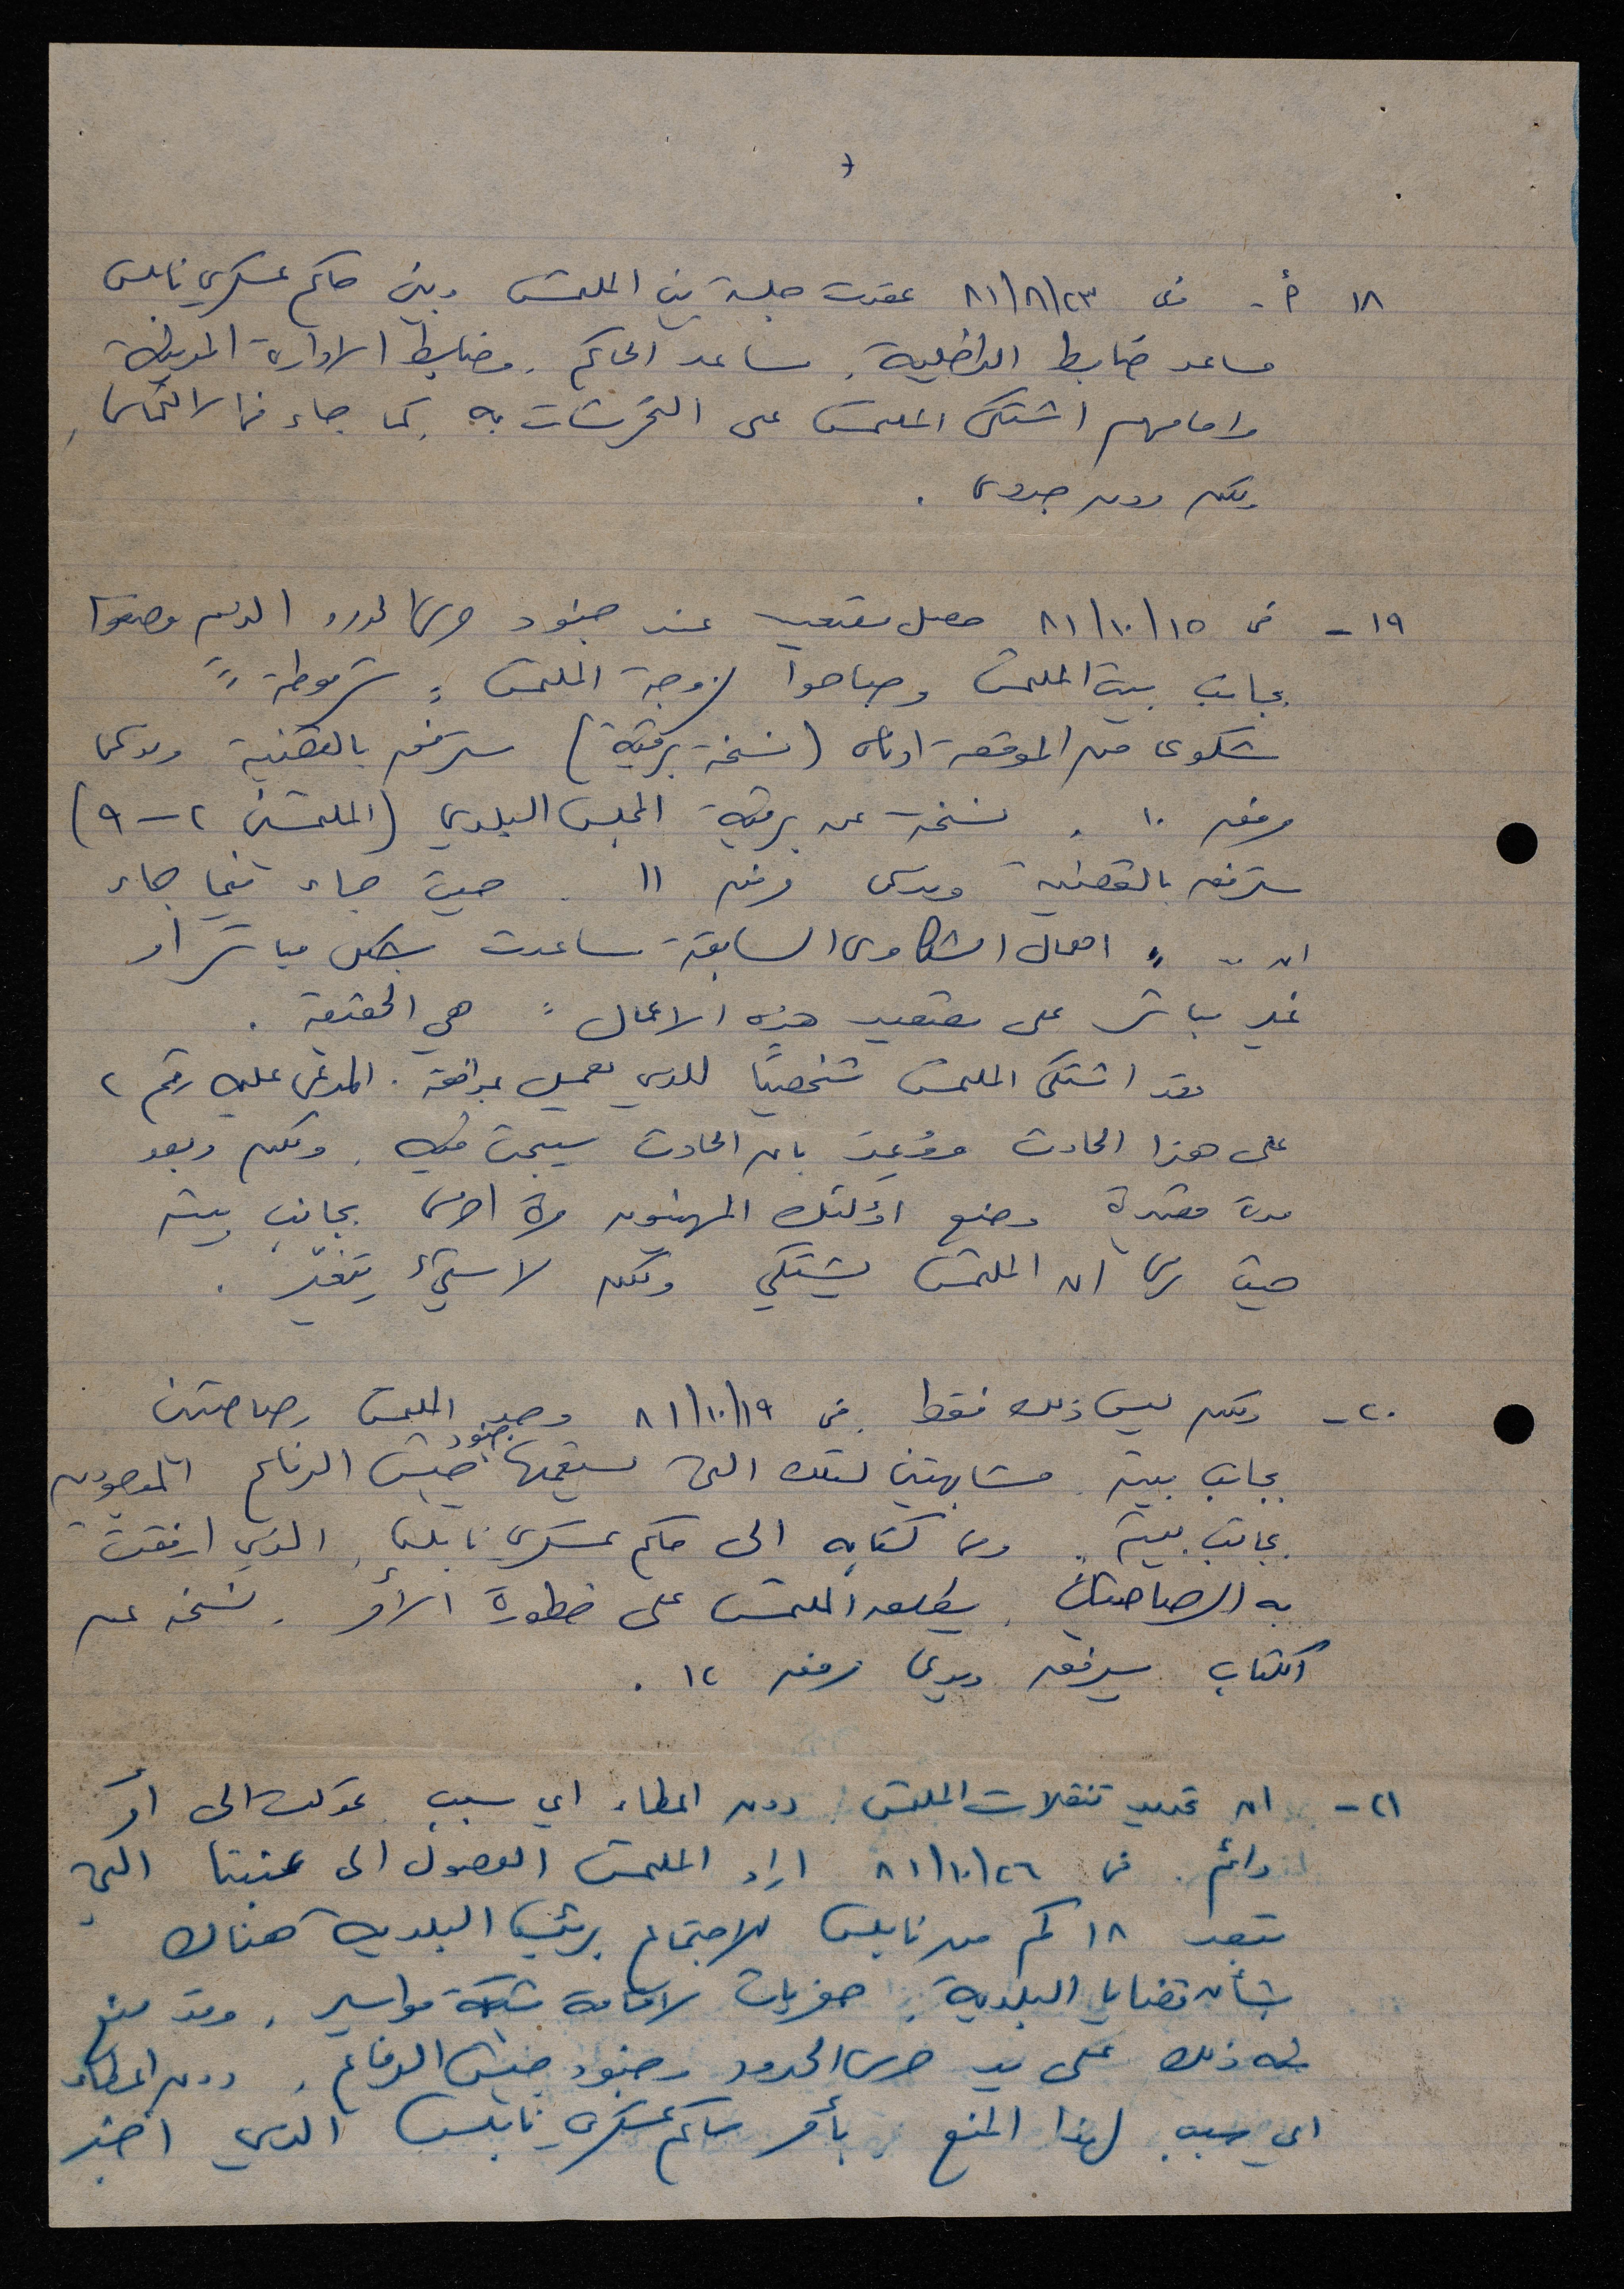 ١٨ أ - في ٨١/٨/٢٣ عقدت جلسة بين الملتمس وبين حاكم عسكري نابلس
مساعد ضابط الداخلية، مساعد الحاكم، وضابط الادارة المدنية
وامامهم اشتكى الملتمس على التحرشات به كما جاء في الالتماس،
ولكن دون جدوى .
١٩ - في ٨١/١٠/١٥ حصل تصعيد عند جنود حرس الحدود الذين وضعوا
بجانب بيت الملتمس وصاحوا لزوجة الملتمس " شرموطة "
شكوى من الموقعة ادناه (نسخة برقية) سترفق بالقضية وتدعى
مرفق ١٠ . نسخة عن برقية المجلس البلدي (الملتمسين ٢ - ٩)
سترفق بالقضية وتدعى مرفق ١١ . حيث جاء فيما جاء
ان .. " اهمال الشكاوى السابقة ساعدت بشكل مباشر او
غير مباشر على تصعيد هذه الاعمال " هي الحقيقة .
لقد اشتكى الملتمس شخصيًا للذي يعمل بموافقة المدعى عليه رقم ٢
على هذا الحادث ووُعِدَ بان الحادث سيبحث فيه . ولكن وبعد
مدة قصيرة وضع اولئك المهينون مرة اخرى بجانب بيته
حيث نرى ان الملتمس يشتكي ولكن لا شيء يتغير .
٢٠ - ولكن ليس ذلك فقط . في ٨١/١٠/١٩ وجد الملتمس رصاصتين
بجانب بيته مشابهتين لتلك التي يستعملها جنود جيش الدفاع الموجودون
بجانب بيته . وفي كتابه الى حاكم عسكري نابلس، الذي ارفقت
به الرصاصتان . يطلعه الملتمس على خطورة الأمر . نسخة عن
الكتاب سيرفق ويدعى مرفق ١٢ .
٢١ - ان تحديد تنقلات الملتمس، دون اعطاء اي سبب تحولت الى امر
دائم . في ٨١/١٠/٢٦ اراد الملتمس الوصول الى عنبتا التي
تبعد ١٨ كم من نابلس للاجتماع برئيس البلدية هناك
بشأن قضايا البلدية . حفريات لاقامة شبكة مواسير . وقد منع
من ذلك على يد حرس الحدود وجنود جيش الدفاع . دون اعطاء
اي سبب لهذا المنع بأمر حاكم عسكري نابلس الذي اخبر